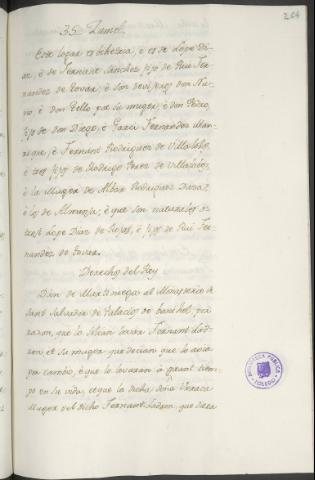 264
35. Zamel.
Este logar es behetria, è es de Lope Di-
az, è de Fernant Sanchez fijo de Rui Fer-
nandez de Tovar, è son devi
don Nu-
ño, è don Tello por su muger, è don Pedro,
fijo de don Diego, è Garci Fernandez Man-
rique, è Fernant Rodriguez de Villalobos,
è tres fijos de Rodrigo Perez de Villalobos,
è la Muger de Albar Rodriguez Daza,
è los de Almanza; è que son naturales
Lope Diaz de Rojas, è fijos de Rui Fer-
nandez de Tovar.
Derechos del Rey
Dan de Martiniega al Monesterio de
Sant Salvador de Palacios de
por
razon, que lo
Fernant Lad-
ron et su muger, que decian que lo avia
por cambio, è que lo levaran à grant tiem-
po en su vida, et que la dicha doña Urraca
Muger del dicho Fernant Ladron, que
BIBLIOTECA PUBLICA
TOLEDO